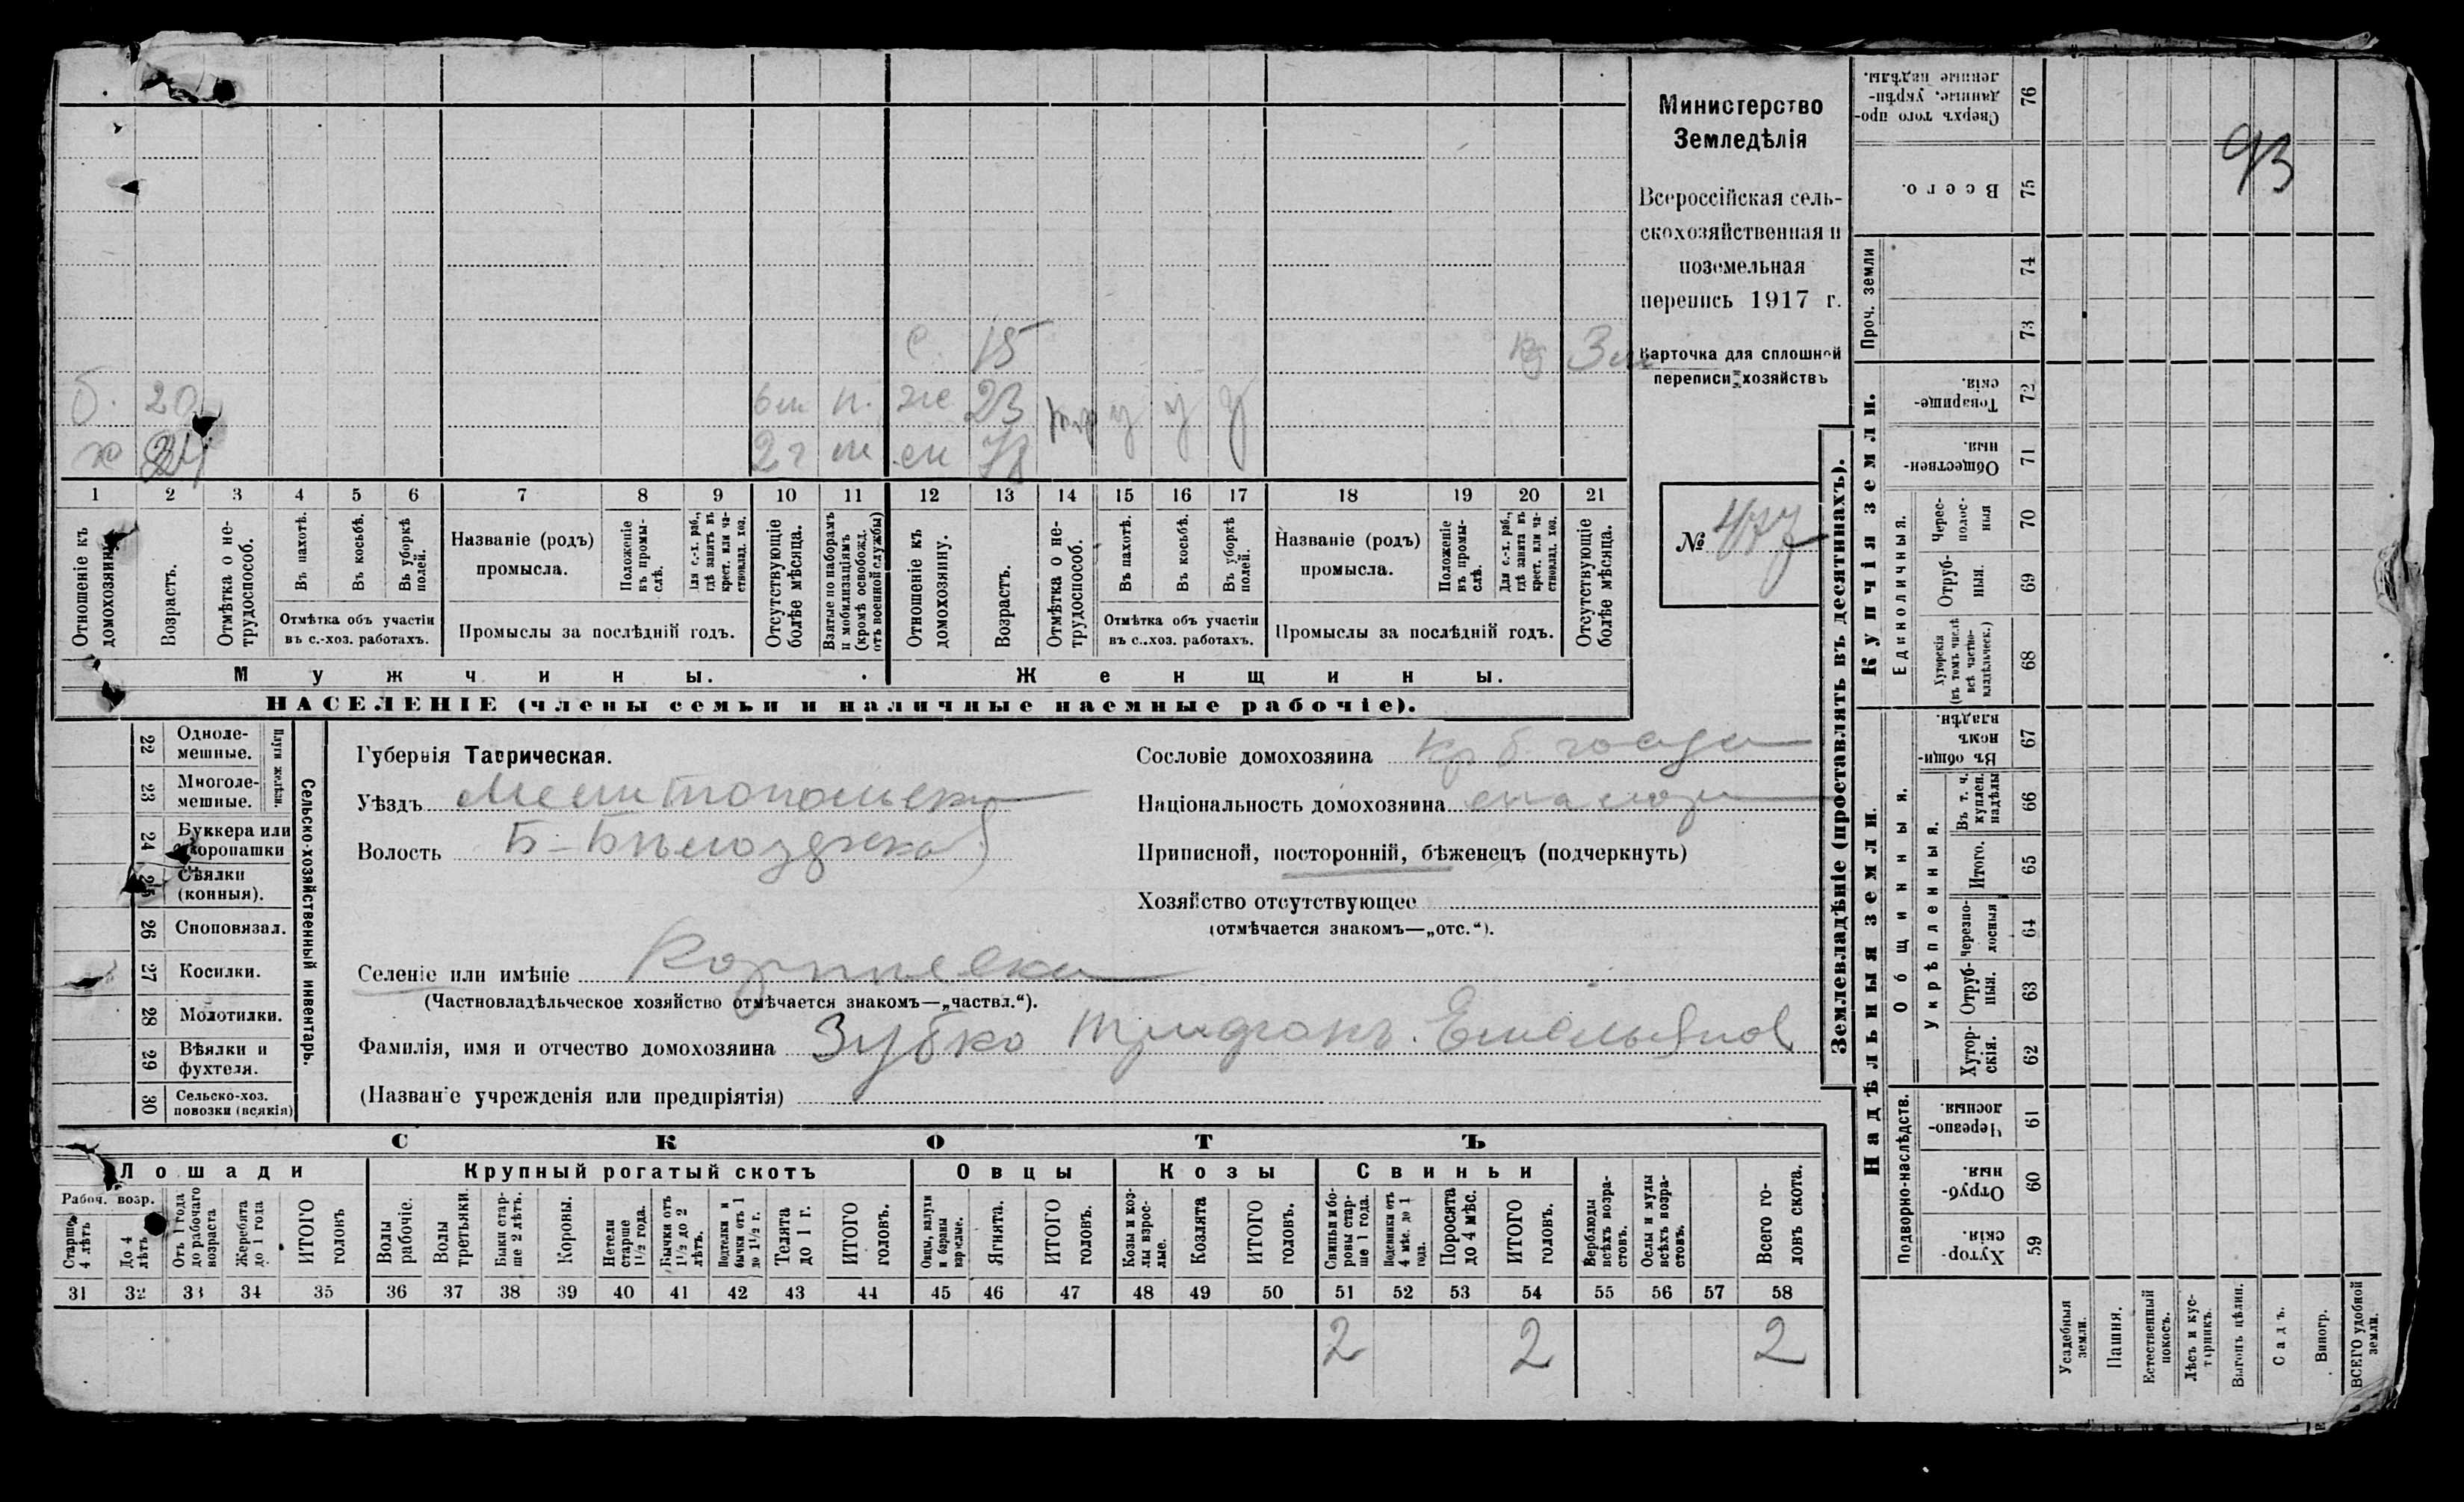 Министерство
Земледѣлія
Всероссійская сель-
скохозяйственная и
поземельная
перепись 1917 г.
Карточка для сплошной
переписи хозяйствъ
№ 477
93
с. 15
б. 20 6 м н. же 23 у у у
х 2 г м м
1 2 3 4 5 6 7 8 9 10 11 12 13 14 15 16 17 18 19 20 21
Отношеніе къ домохозяину.
Возрастъ.
Отмѣтка о не-трудоспособ.
Въ пахотѣ.
Въ косьбѣ.
Въ уборкѣ полей.
Отмѣтка объ участіи
въ с.-хоз. работахъ.
Названіе (родъ)
промысла.
Положеніе въ промы-слѣ.
Для с.-х. раб., гдѣ занятъ въ крест. или ча-стновлад. хоз.
Промыслы за послѣдній годъ.
Отсутствующіе болѣе мѣсяца.
Взятые по наборамъ и мобилизаціямъ (кромѣ освобожд. отъ военной службы)
Отношеніе къ домохозяину.
Возрастъ.
Отмѣтка о не-трудоспособ.
Въ пахотѣ.
Въ косьбѣ.
Въ уборкѣ полей.
Отмѣтка объ участіи
въ с..хоз. работахъ.
Названіе (родъ)
промысла.
Положеніе въ промы-слѣ.
Для с.-х. раб., гдѣ занята въ крест. или ча-стновлад. хоз.
Промыслы за послѣдній годъ.
Отсутствующіе болѣе мѣсяца.
Мужчины.
Женщины.
НАСЕЛЕНІЕ (члены семьи и наличные наемные рабочіе).
Сельско-хозяйственный инвентарь.
Плуги желѣзн.
22 Одноле-мешные.
23 Многоле-мешные.
24 Буккера или скоропашки
25 Сѣялки (конныя).
26 Сноповязал.
27 Косилки.
28 Молотилки.
29 Вѣялки и фухтеля.
30 Сельско-хоз. повозки (всякія)
Губернія Таврическая.
Уѣздъ Мелитопольскій
Волость Б-Бѣлозерская
Сословіе домохозяина кр б. госуд
Національность домохозяина малор
Приписной, посторонній, бѣженецъ (подчеркнуть)
Хозяйство отсутствующее
(отмѣчается знакомъ—„отс.“).
Селеніе или имѣніе
(Частновладѣльческое хозяйство отмѣчается знакомъ—„частвл.“).
Фамилія, имя и отчество домохозяина Зубко Трифонъ Емельянов
(Названіе учрежденія или предпріятія)
СКОТЪ
Лошади
Крупный рогатый скотъ
Овцы
Козы
Свиньи
Рабоч. возр.
Старше 4 лѣтъ
До 4 лѣтъ
Отъ 1 года до рабочаго возраста
Жеребята до 1 года
ИТОГО головъ
Волы рабочіе.
Волы третьяки.
Быки стар-ше 2 лѣтъ.
Коровы.
Нетели старше 1½ года.
Бычки отъ 1½ до 2 лѣтъ.
Подтелки и бычки отъ 1 до 1½ г.
Телята до 1 г.
ИТОГО головъ.
Овцы, валухи и бараны взрослые.
Ягнята.
ИТОГО головъ.
Козы и коз-лы взрос-лые.
Козлята
ИТОГО головъ.
Свиньи и бо-ровы стар-ше 1 года.
Подсвинки отъ 4 мѣс. до 1 года.
Поросята до 4 мѣс.
ИТОГО головъ.
Верблюды всѣхъ возра-стовъ.
Ослы и мулы всѣхъ возра-стовъ.
Всего го-ловъ скота.
31 32 33 34 35 36 37 38 39 40 41 42 43 44 45 46 47 48 49 50 51 52 53 54 55 56 57 58
2 2 2
Землевладѣніе (проставлять въ десятинахъ).
Купчія земли.
Надѣльныя земли.
Сверхъ того про-данные, укрѣп-ленные надѣлы. 76
Всего. 75
Проч. земли
74
73
Товарище-скія. 72
Обществен-ныя. 71
Единоличныя.
Черес-полос-ныя 70
Отруб-ныя. 69
Хуторскія (въ томъ числѣ всѣ частно-владѣльческ.) 68
Общинныя.
Въ общин-номъ владѣн. 67
Укрѣпленныя.
Въ т. ч. куплен. надѣлы 66
Итого. 65
Черезпо-лосныя 64
Отруб-ныя. 63
Хутор-скія. 62
Подворно-наслѣдств.
Черезпо-лосныя. 61
Отруб-ныя. 60
Хутор-скія. 59
Усадебныя земли.
Пашня.
Естественный покосъ.
Лѣсъ и кус-тарникъ.
Выгонъ цѣлин.
Садъ.
Виногр.
ВСЕГО удобной земли.